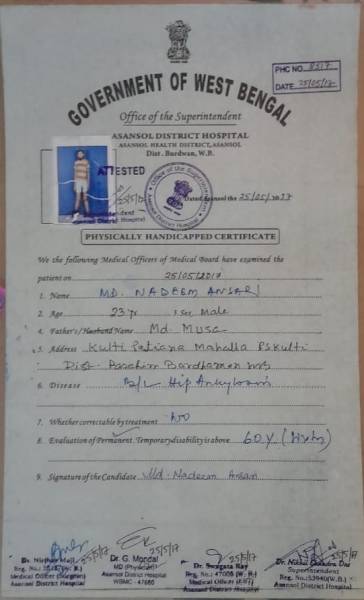 PHC NO. 8517
DATE. 25/05/17
GOVERNMENT OF WEST BENGAL
Office of the Superintendent
ASANSOL DISTRICT HOSPITAL
ASANSOL HEALTH DISTRICT, ASANSOL
Dist. Burdwan, W.B.
ATTESTED
25/5/17
Asansol District Hospital
Dated Asansol the 25/05/2017
PHYSICALLY HANDICAPPED CERTIFICATE
We the following Medical Officers of Medical Board have examined the
patient on 25/05/2017
1. Name MD. NADEEM ANSARI
2. Age 23 yr 3. Sex Male
4. Father's/Husband Name Md. Musa
5. Address Kulti Mahalla PS Kulti
Dist. Paschim Bardhaman WB
6. Disease B/L Hip Ankylosis
7. Whether correctable by treatment NO
8. Evaluation of Permanent. Temporary disability is above 60% (Sixty)
9. Signature of the Candidate Md. Nadeem Ansari
25/5/17 25/5/17 25/5/17 25/5/17
Medical Officer
Asansol District Hospital
Dr. G. Mondal
MD (Physician)
Asansol District Hospital
WBMC - 47680
Dr. Swagata Ray
Reg. No.: 47005 (W.B.)
Medical Officer
Asansol District Hospital
Superintendent
Asansol District Hospital